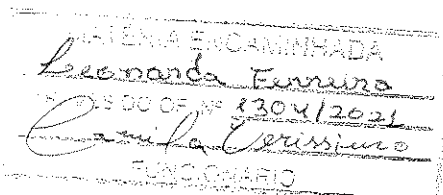 MATÉRIA ENCAMINHADA
Leonardo Ferreira
DO OF. Nº 1304/2021
Camila Verissimo
FUNCIONÁRIO